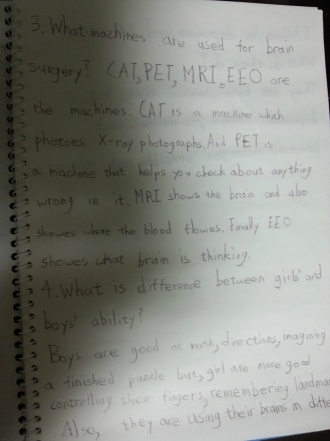 3. What machines are used for brain
surgery? CAT, PET, MRI, EEO are
the machines. CAT is a machine which
photoes X-ray photographs. And PET is
a machine that helps you check about anything
wrong in it. MRI shows the brain and also
showes where the blood flowes. Finally EEO
showes what brain is thinking.
4. What is difference between girls' and
boys' ability?
Boys are good at math, directions, imagining
a finished puzzle but, girl are more good
controlling their fingers, remembering landma
Also, they are using their brains in diffe